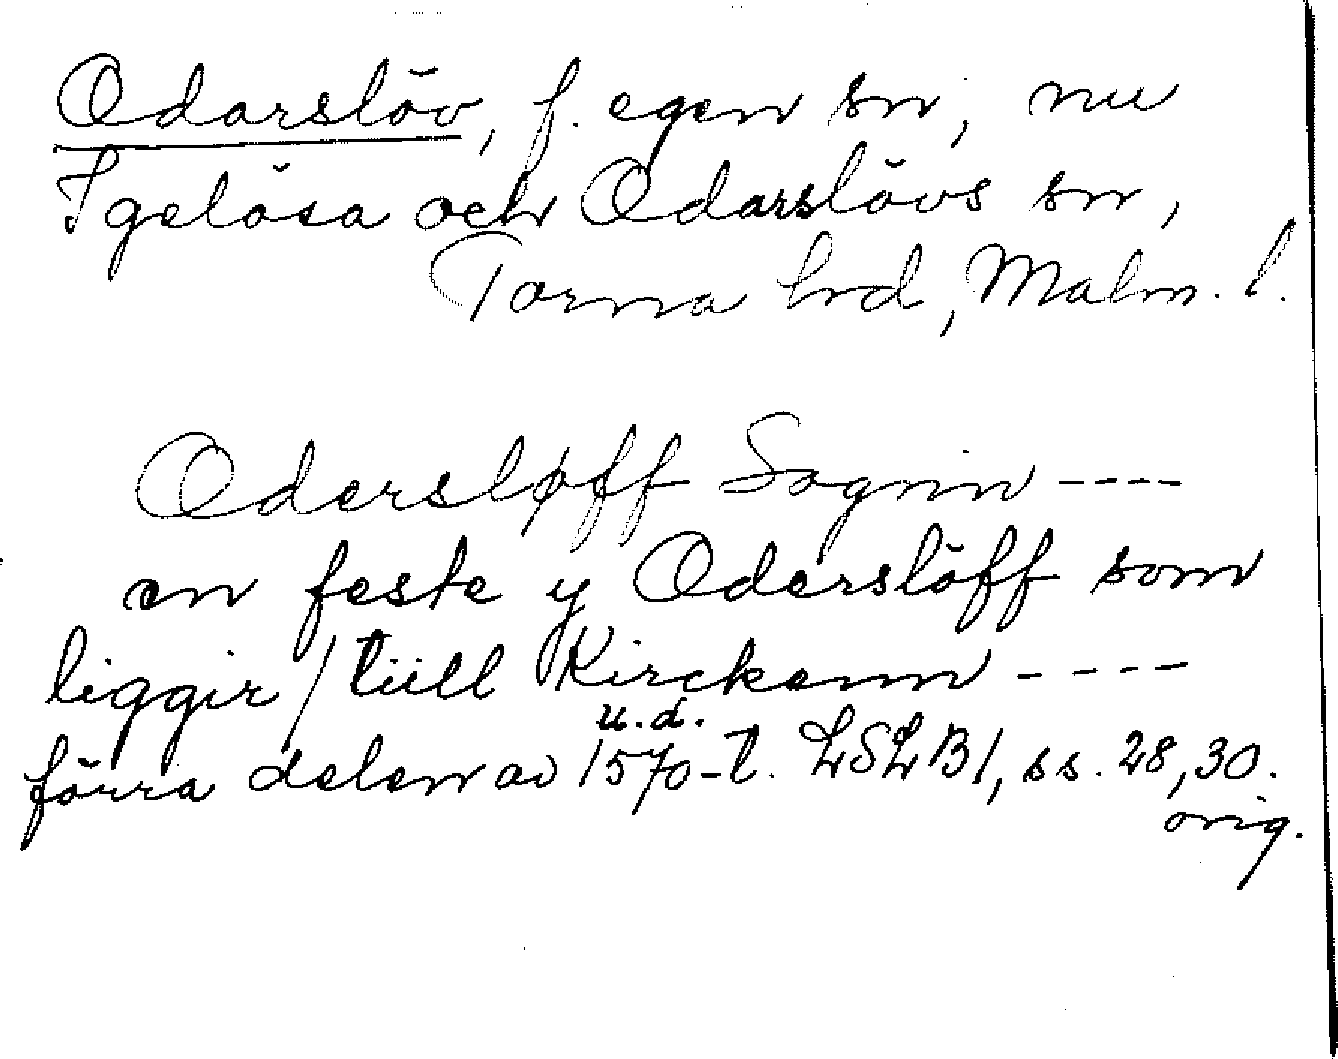 Odarslöv, f. egen sn, nu
Igelösa och Odarslövs sn,
Torna hrd, Malm. l.
Odersløff Sognn ----
en feste y Oderslöff som
liggir / tiill Kirckenn ----
u.d.
förra delen av 1570-t. LSLB1, ss. 28, 30.
orig.